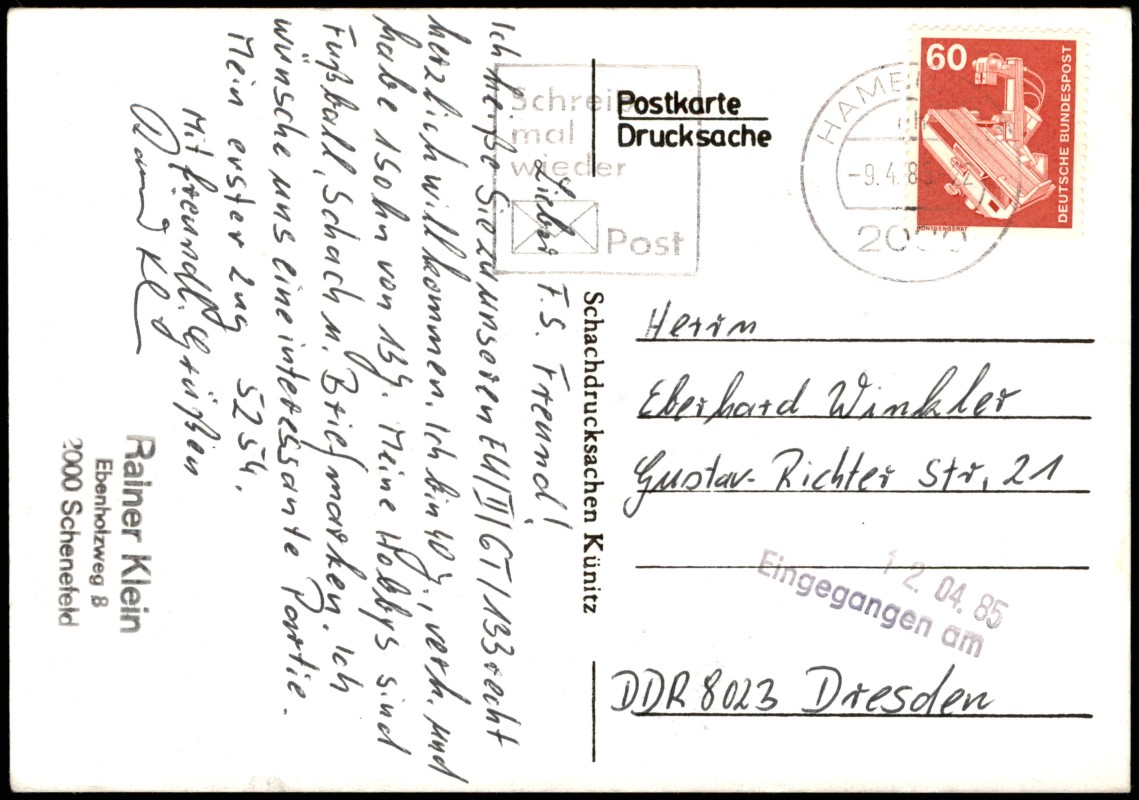 Lieber F.S. Freund!
Ich heiße Sie zu unseren EU/II/GT/133 recht
herzlich willkommen. Ich bin 40 J., verh. und
habe 1 Sohn von 13 J. Meine Hobbys sind
Fußball, Schach u. Briefmarken. Ich
wünsche uns eine interessante Partie.
Mein erster Zug 5254.
Mit freundl. Grüßen
Rainer Klein
Ebenholzweg 8
2000 Schenefeld
Schachdrucksachen Künitz
Postkarte
Drucksache
Schrei
mal
wieder
Post
-9.4.8
60
DEUTSCHE BUNDESPOST
RÖNTGENGERÄT
Herrn
Eberhard Winkler
Gustav-Richter Str. 21
12.04.85
Eingegangen am
DDR 8023 Dresden